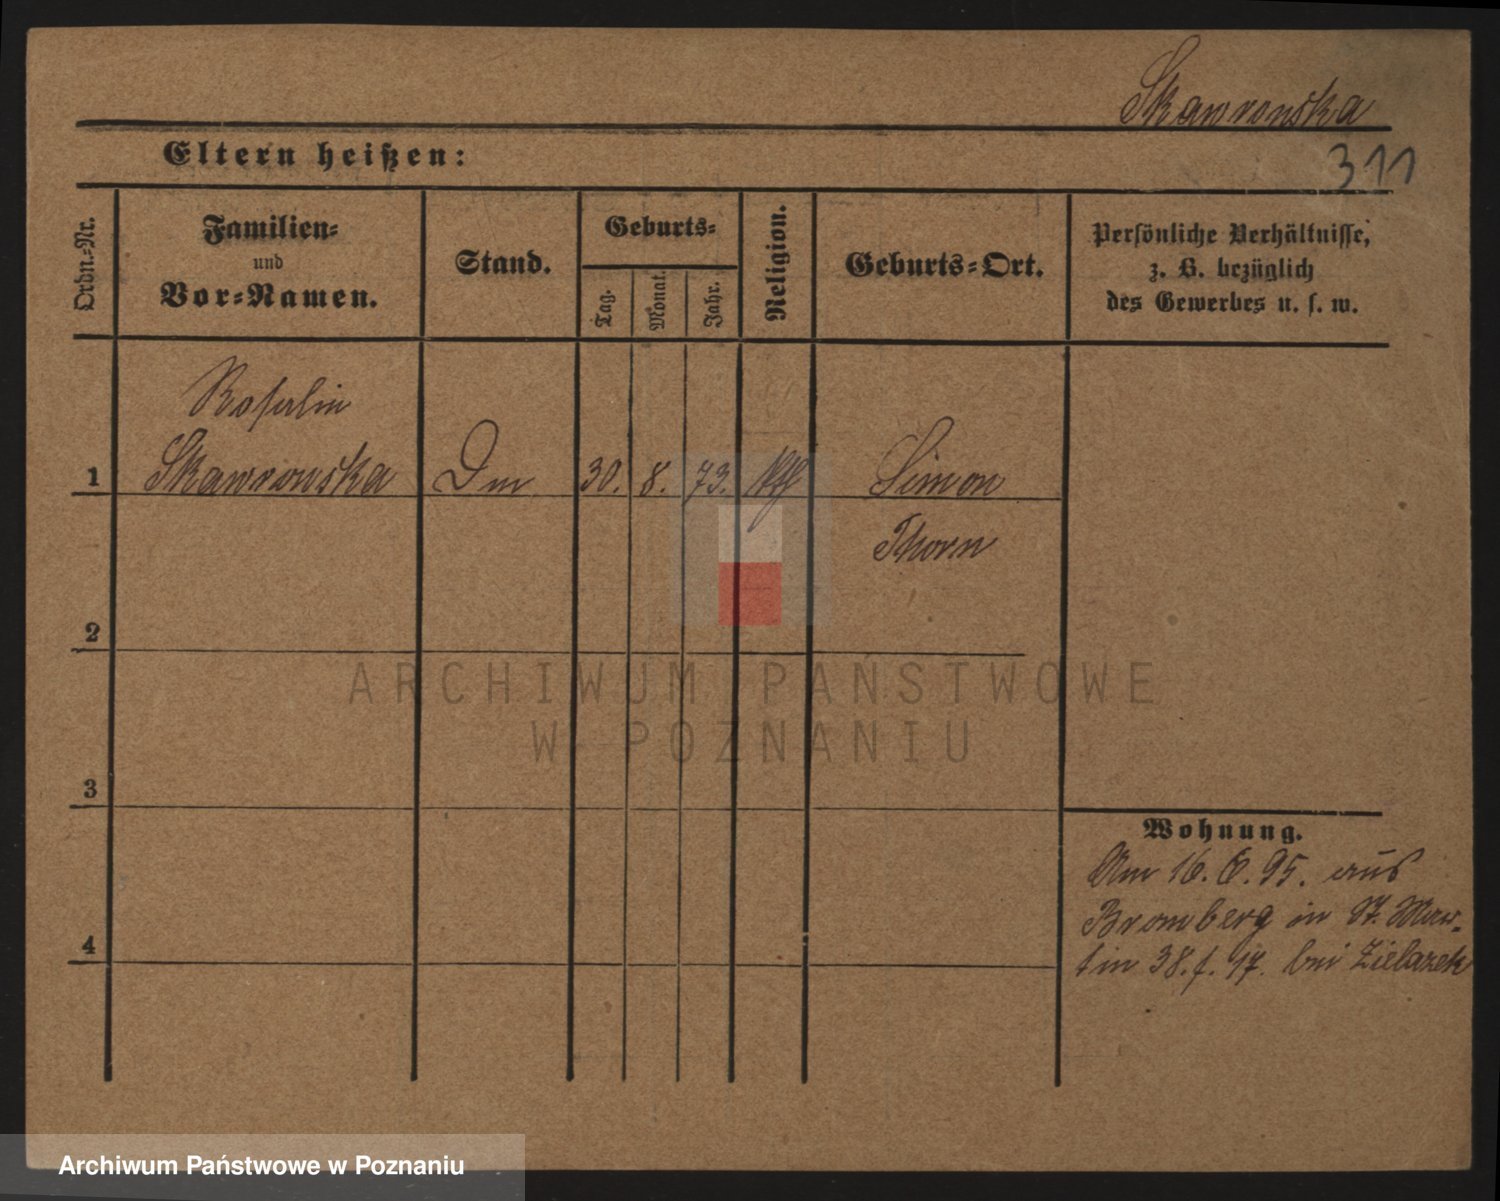 Skawronska
Eltern heißen:
311
Ordn.-Nr.
Familien-
und
Vor-Namen.
Stand.
Geburts-
Tag.
Monat.
Jahr.
Religion.
Geburts-Ort.
Persönliche Verhältnisse,
z. B. bezüglich
des Gewerbes u. s. w.
1
Rosalin
Skawronska
30.
8.
73.
Simon
Thorn
2
ARCHIWUM PAŃSTWOWE
W POZNANIU
3
Wohnung.
Am 16. 6. 95. aus
Bromberg in St. Mar-
tin 38. f. 17. bei Zielazek
4
Archiwum Państwowe w Poznaniu